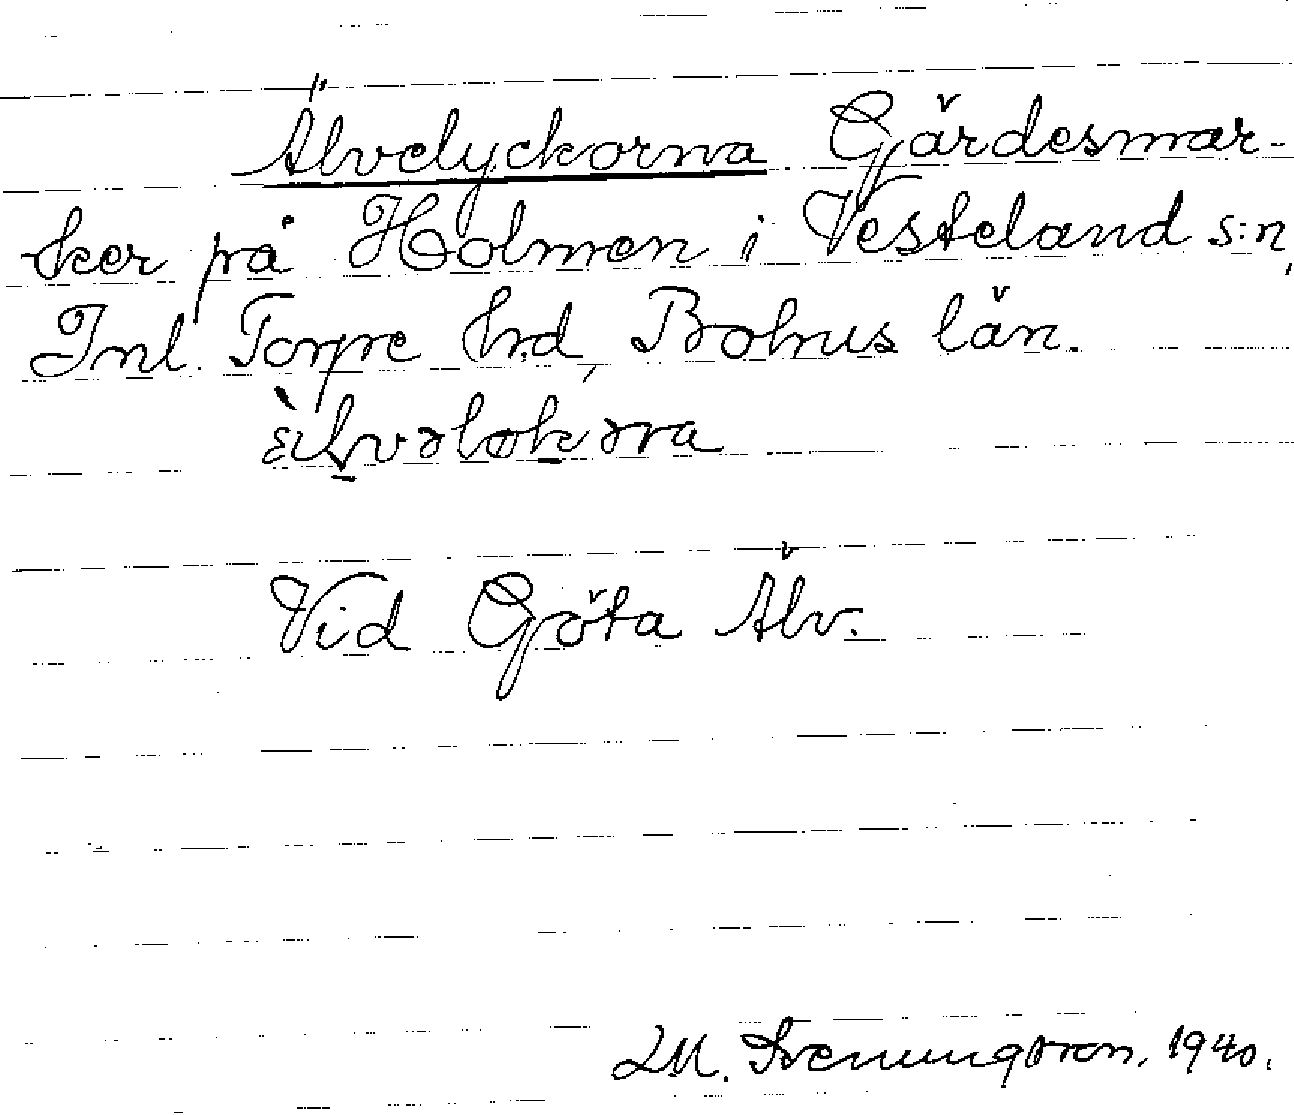 Älvelyckorna Gärdesmar-
ker på Holmen i Vesteland s:n,
Inl. Torpe hd, Bohus län.
Vid Göta Älv.
M. Svenungsson. 1940.